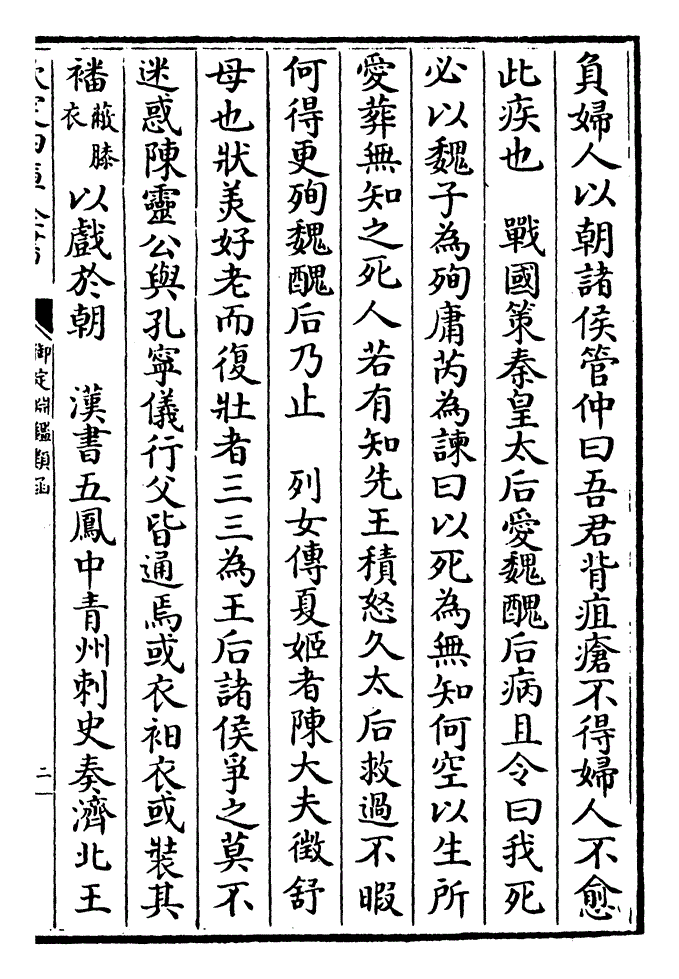 負婦人以朝諸侯管仲曰吾君背疽瘡不得婦人不愈
此疾也　戰國策秦皇太后愛魏醜后病且令曰我死
必以魏子為殉庸芮為諫曰以死為無知何空以生所
愛葬無知之死人若有知先王積怒久太后救過不暇
何得更殉魏醜后乃止　列女傳夏姬者陳大夫徴舒
母也狀美好老而復壯者三三為王后諸侯爭之莫不
迷惑陳靈公與孔寧儀行父皆通焉或衣衵衣或裝其
襎蔽膝衣以戲於朝　漢書五鳳中青州刺史奏濟北王
御定淵鑑類函
二